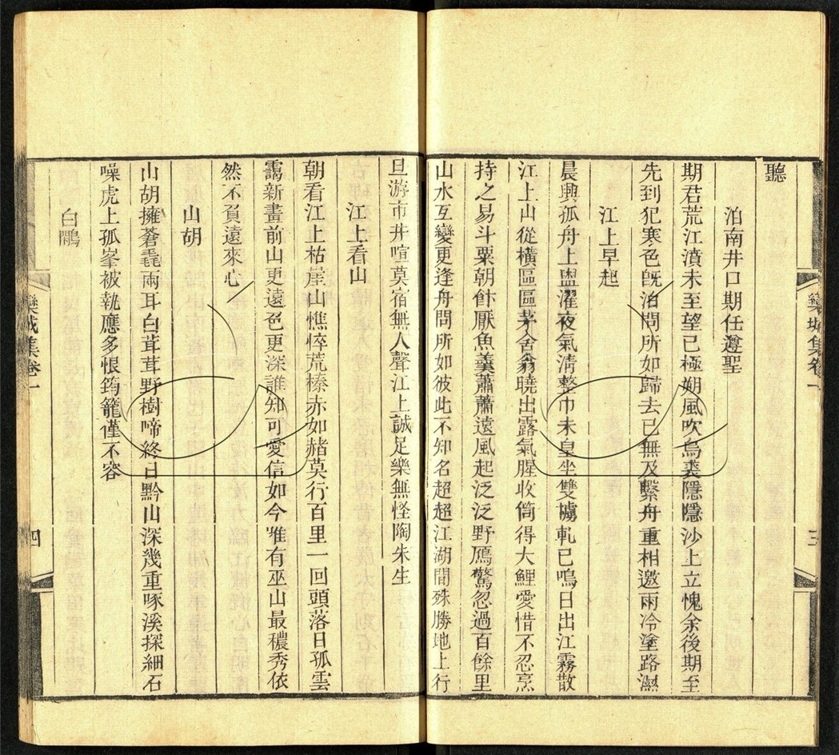 聽
泊南井口期任遵聖
期君荒江濆未至望已極朔風吹烏裘隱隱沙上立愧余後期至
先到犯寒色既泊問所如歸去已無及繫舟重相邀雨冷塗路濕
江上早起
晨興孤舟上盥濯夜氣清整巾未皇坐雙櫓軋已鳴日出江霧散
江上山從橫區區茅舍翁曉出露氣腥收筒得大鯉愛惜不忍烹
持之易斗粟朝飰厭魚羹蕭蕭遠風起泛泛野鴈驚忽過百餘里
山水互變更逢舟問所如彼此不知名超超江湖間殊勝地上行
欒城集卷一
三
旦游市井喧莫宿無人聲江上誠足樂無怪陶朱生
江上看山
朝看江上枯崖山憔悴荒榛赤如赭莫行百里一回頭落日孤雲
靄新畫前山更遠色更深誰知可愛信如今唯有巫山最穠秀依
然不負遠來心
山胡
山胡擁蒼毳兩耳白茸茸野樹啼終日黔山深幾重啄溪探細石
噪虎上孤峯被執應多恨筠籠僅不容
白鷴
欒城集卷一
四